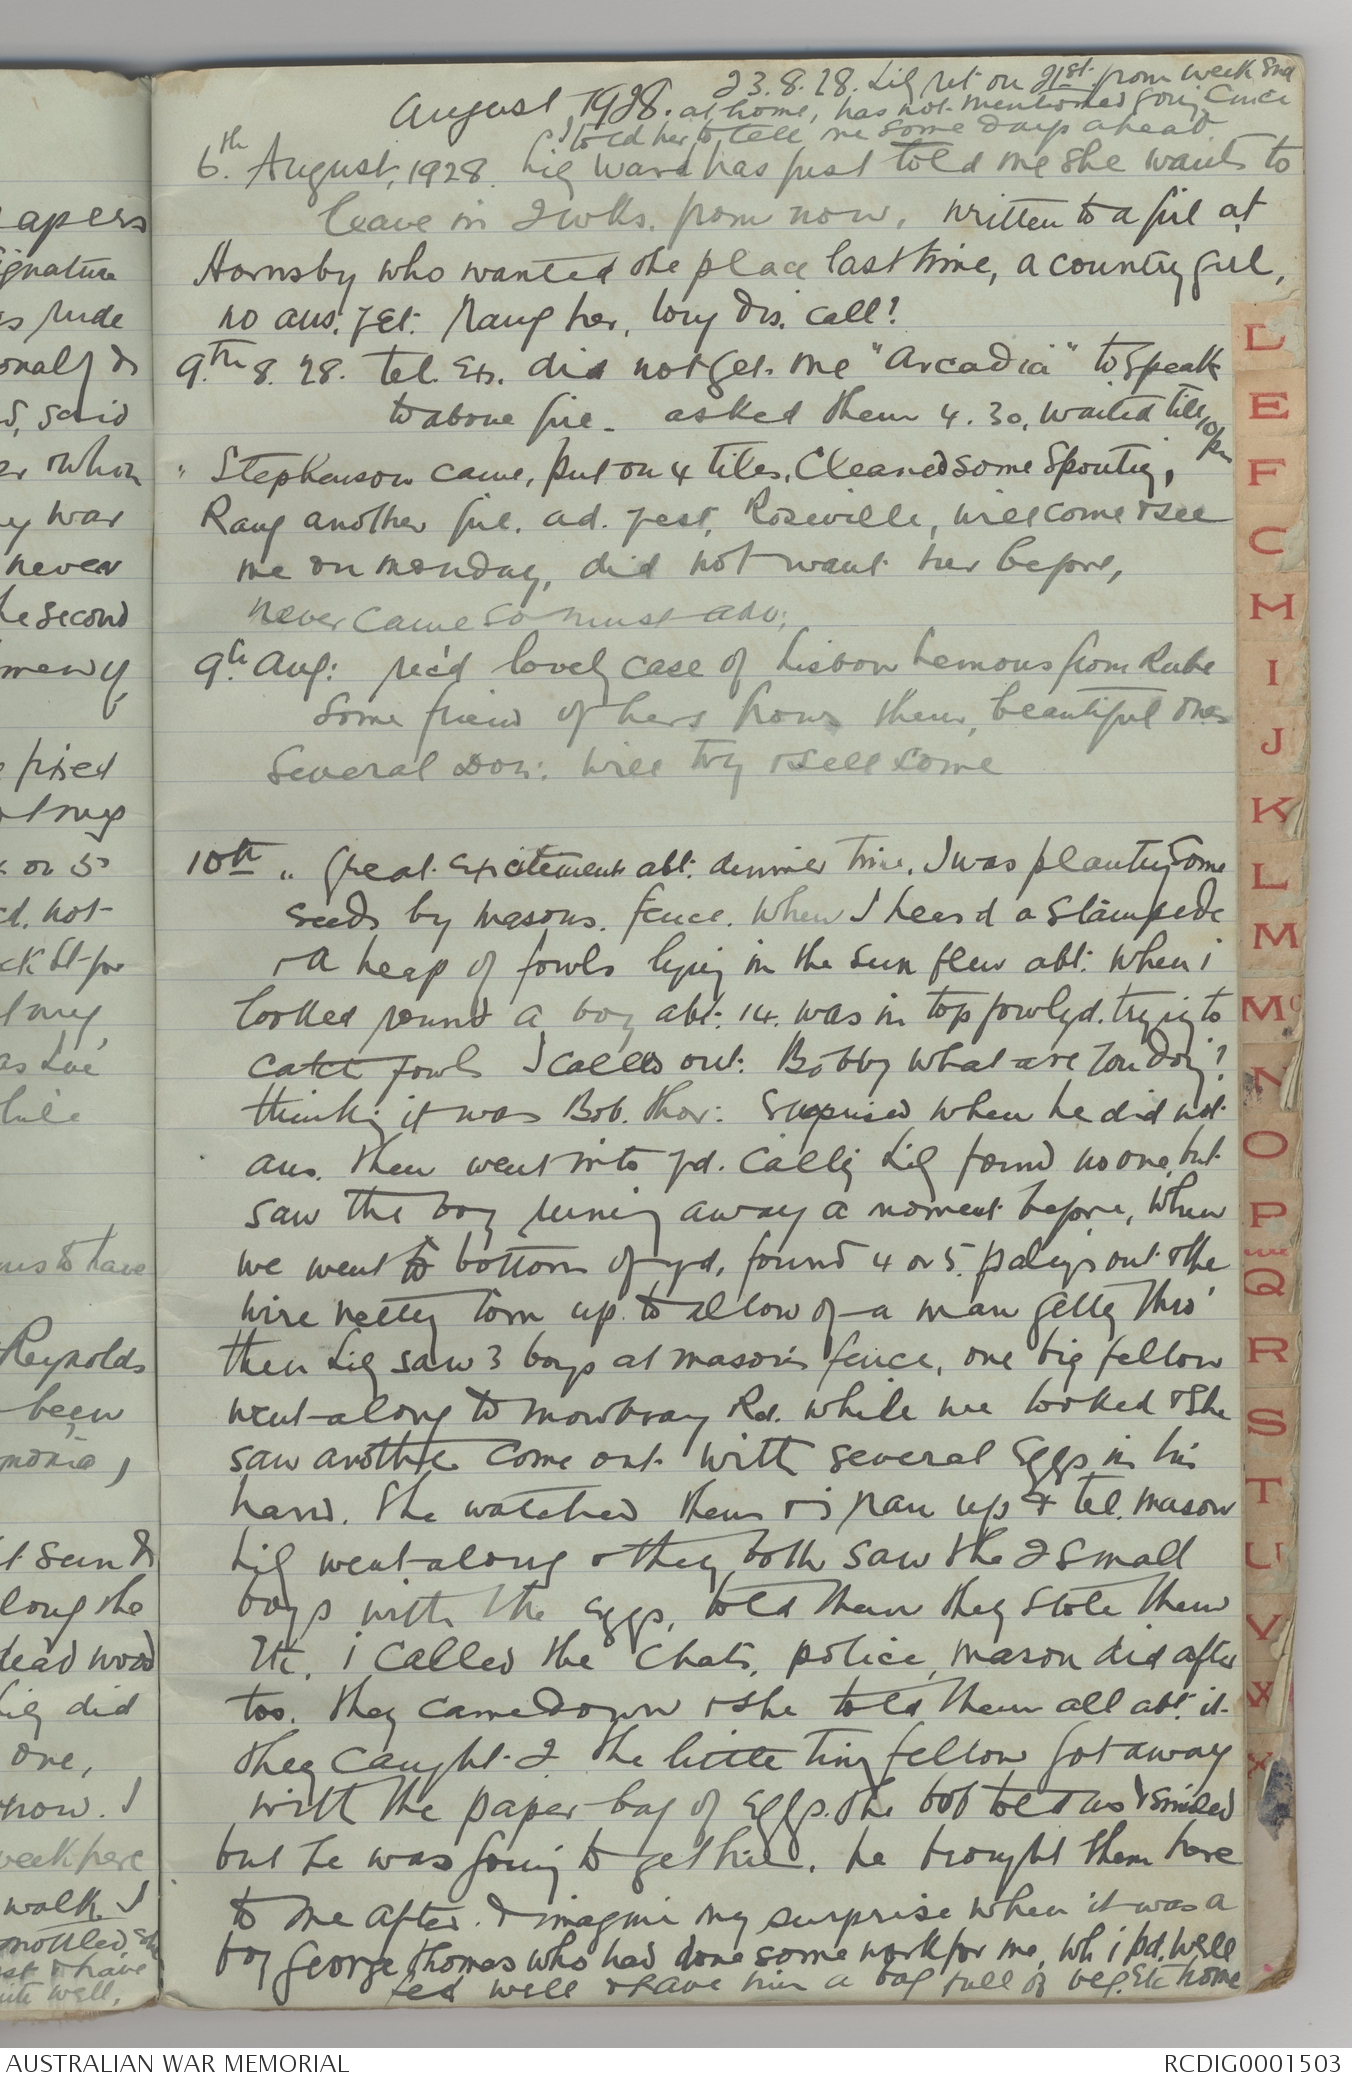 23.8.28. Lil ret on 21st. from week end
August, 1928. at home, has not mentioned going since
I told her to tell me some days ahead.
6th. August, 1928. Lil Ward has just told me she wants to
leave in 2 wks. from now. Written to a girl at
Hornsby who wanted the place last time, a country girl,
no ans. yet. Rang her, long dis. call!
9th. 8. 28. Tel. Ex. did not get me "Arcadia" to speak
to above girl. asked them 4.30, waited till 10 pm
" Stephenson came, put on 4 tiles. Cleaned some Spouting,
Rang another girl. ad. yest, Roseville, will come & see
me on monday, did not want her before,
never came so must adv;
9th. Aug: rec'd lovely case of Lisbon Lemons from Rube
Some friend of hers grows them, beautiful ones
Several Doz: will try & sell some
10th " Great Excitement abt. dinner time. I was planting some
seeds by masons. fence. When I heard a stampede
& a heap of fowls lying in the sun flew abt. When i
looked round a boy abt. 14. was in top fowlyd. trying to
catch fowls I called out. Bobby what are you doing?
thinking it was Bob. Thor: Surprised when he did not
ans. then went into yd. calling Lil found no one, but
saw the boy running away a moment before, When
we went to bottom of yd, found 4 or 5. palings out & the
wire netting torn up to allow of a man getting thro'
then Lil saw 3 boys at mason's fence, one big fellow
went along to Mowbray Rd. while we looked & she
saw another come out with several Eggs in his
hand. She watched them & i ran up & tel. mason
Lil went along & they both saw the 2 small
boys with the Eggs, told them they stole them
Etc. i called the Chats. police, mason did after
too. They came down & she told them all abt. it.
they caught 2. the little tiny fellow got away
with the paper bag of Eggs. the bob told us & smiled
but he was going to get him. he brought them here
to me after. & imagine my surprise when it was a
boy George Thomas who had done some work for me, wh i pd. well
fed well & gave him a bag full of veg. Etc home
apers
ignature
s rude
onally &
S, said
er whom
ny war
never
he second
men of
e fixed
at my
4 or 5
d. not
ck St for
t my
as Lu'
while
ms to have
Reynolds
been
monia,
t sun &
long the
dead wood
Lil did
one,
now. I
week here
walk. I
mottled, she
& have
well,
D
E
F
G
H
I
J
K
L
M
Mc
N
O
P
Q
R
S
T
U
V
X
AUSTRALIAN WAR MEMORIAL
RCDIG0001503